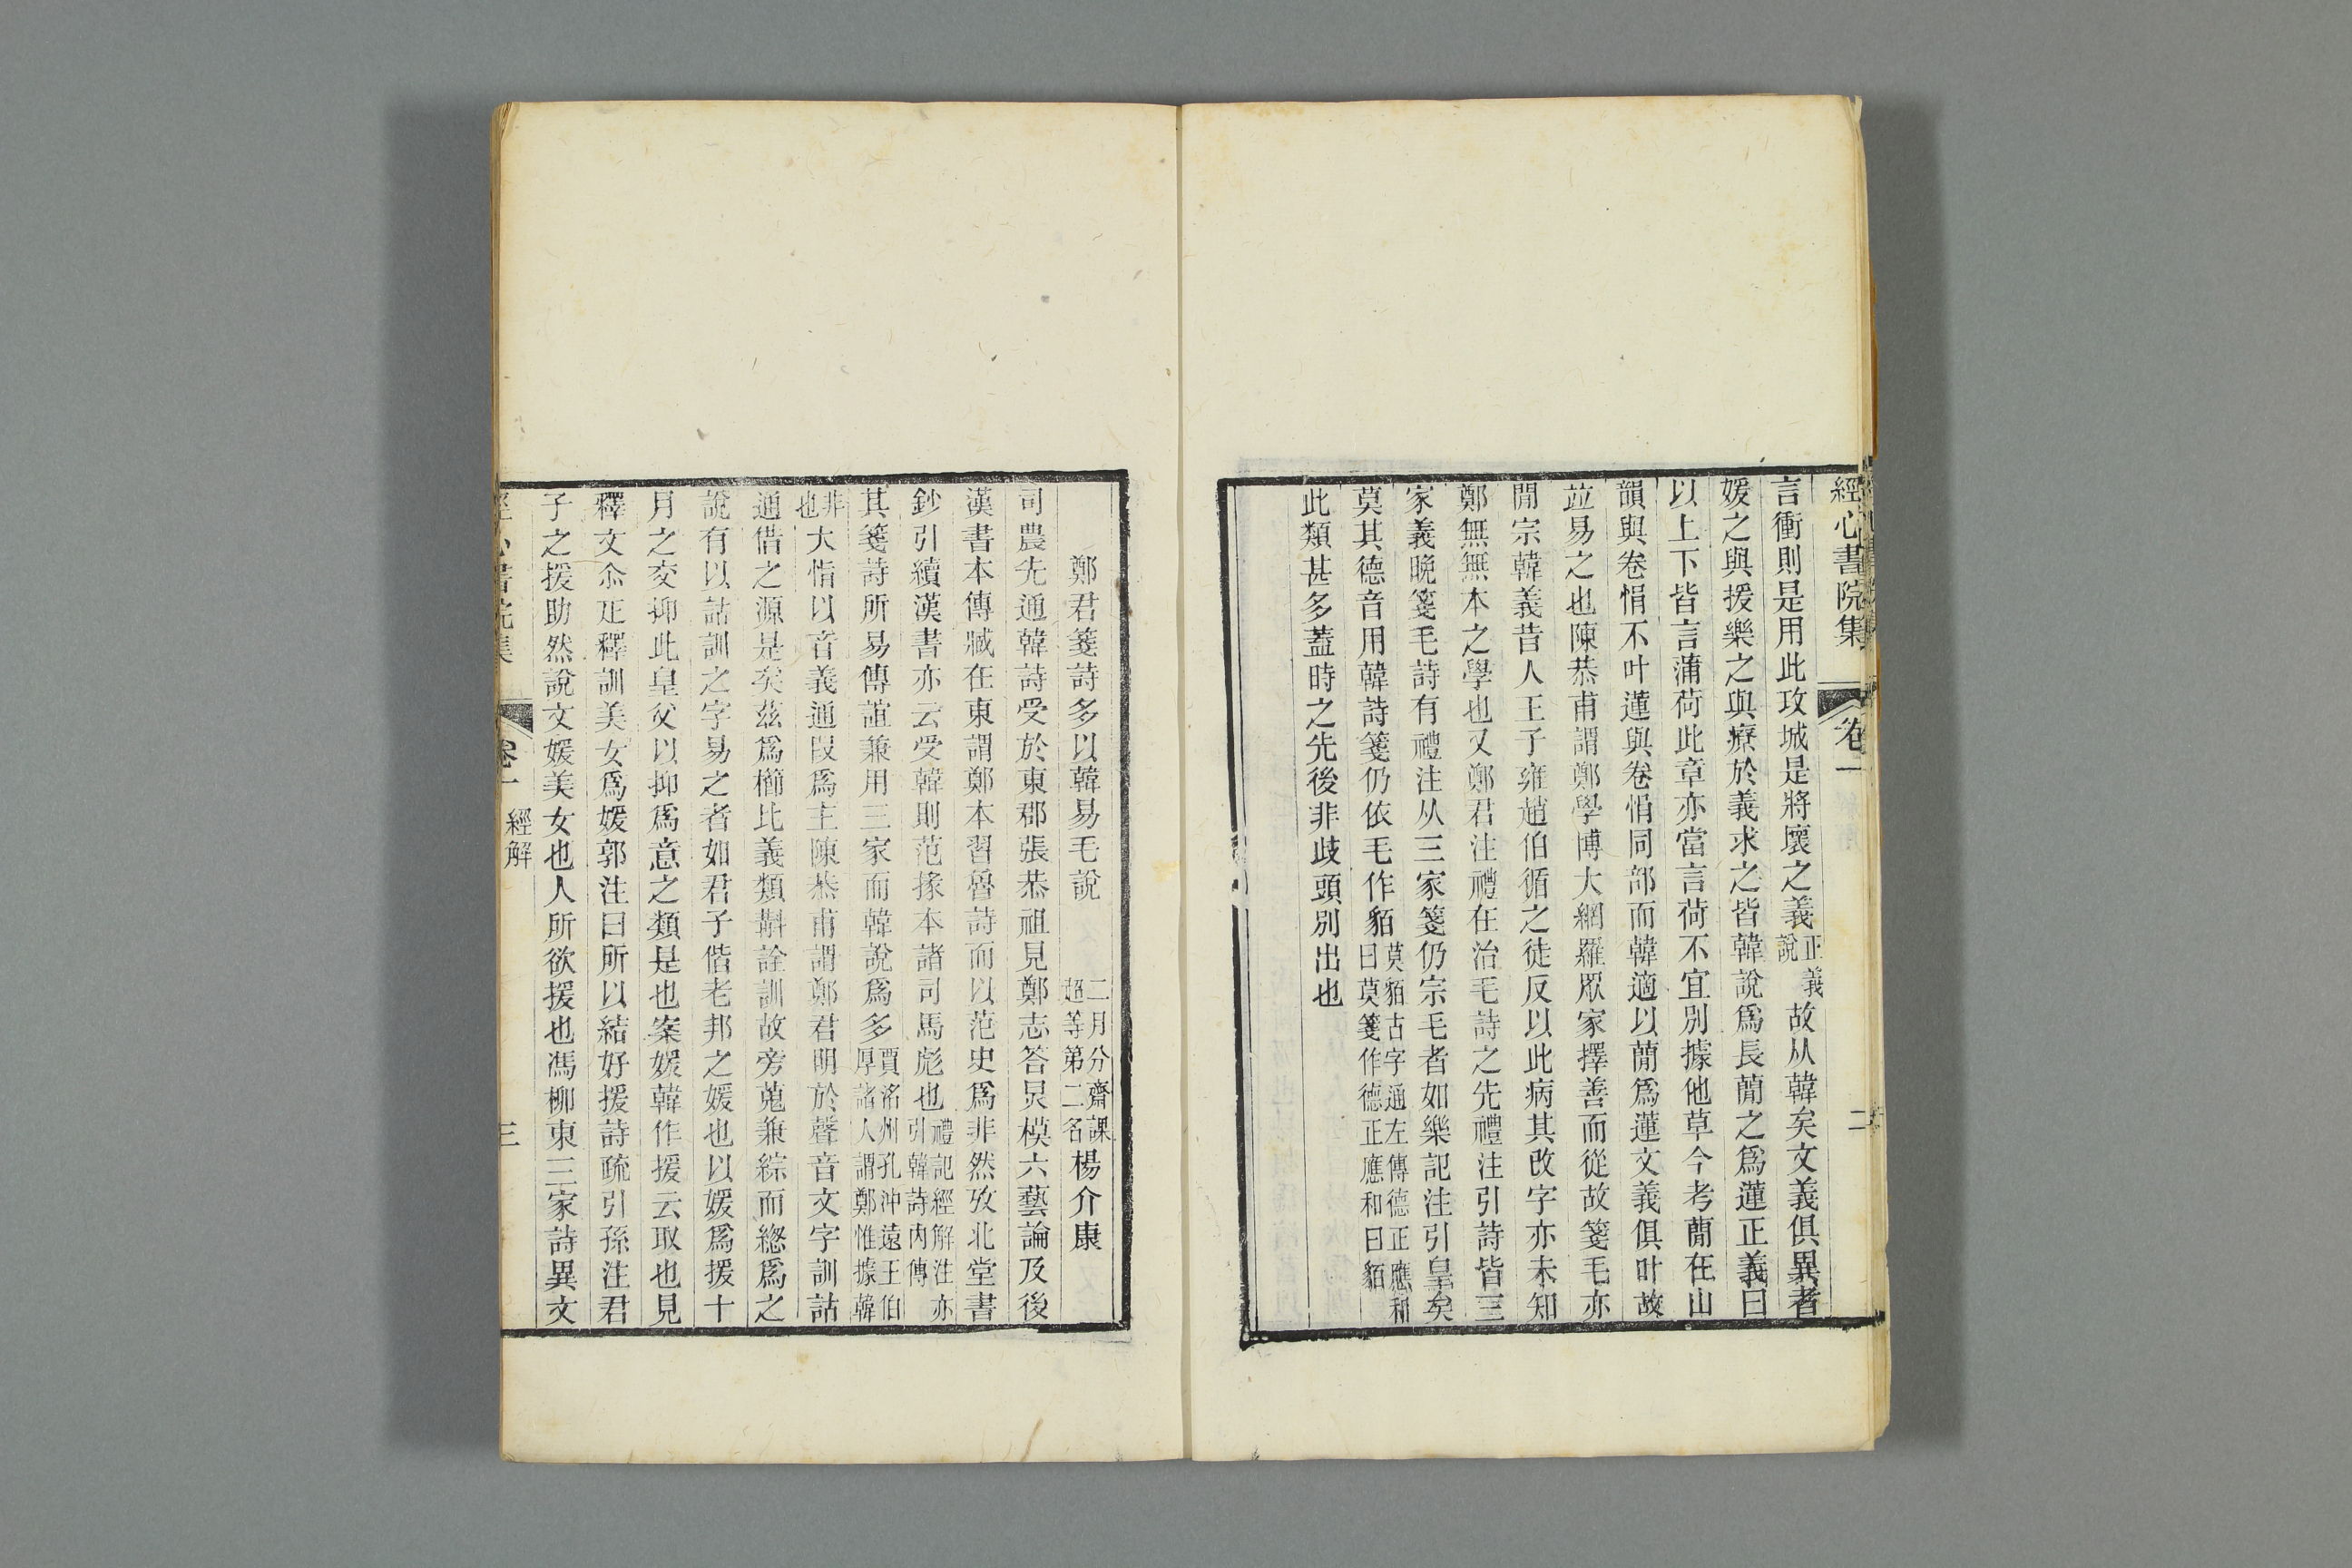 經心書院集 卷一 二
言衝則是用此攻城是將壞之義正義說故从韓矣文義俱異者
媛之與援樂之與療於義求之皆韓說爲長蕑之爲蓮正義曰
以上下皆言蒲荷此章亦當言荷不宜別據他草今考蕑在山
韻與卷悁不叶蓮與卷悁同部而韓適以蕑爲蓮文義俱叶故
竝易之也陳恭甫謂鄭學博大網羅眾家擇善而從故箋毛亦
閒宗韓義昔人王子雍趙伯循之徒反以此病其改字亦未知
鄭無無本之學也又鄭君注禮在治毛詩之先禮注引詩皆三
家義晚箋毛詩有禮注从三家箋仍宗毛者如樂記注引皇矣
莫其德音用韓詩箋仍依毛作貊莫貊古字通左傳德正應和曰莫箋作德正應和曰貊
此類甚多蓋時之先後非歧頭別出也
鄭君箋詩多以韓易毛說 二月分齋課超等第二名楊介康
司農先通韓詩受於東郡張恭祖見鄭志答炅模六藝論及後
漢書本傳臧在東謂鄭本習魯詩而以范史爲非然攷北堂書
鈔引續漢書亦云受韓則范掾本諸司馬彪也禮記經解注亦引韓詩內傳
其箋詩所易傳誼兼用三家而韓說爲多賈洺州孔沖遠王伯厚諸人謂鄭惟據韓
非也大惰以音義通叚爲主陳恭甫謂鄭君明於聲音文字訓詁
通借之源是矣茲爲櫛比義類斠詮訓故旁蒐兼綜而總爲之
說有以詁訓之字易之者如君子偕老邦之媛也以媛爲援十
月之交抑此皇父以抑爲意之類是也案媛韓作援云取也見
釋文尒疋釋訓美女爲媛郭注曰所以結好援詩疏引孫注君
子之援助然說文媛美女也人所欲援也馮柳東三家詩異文
經心書院集 卷一 經解 三